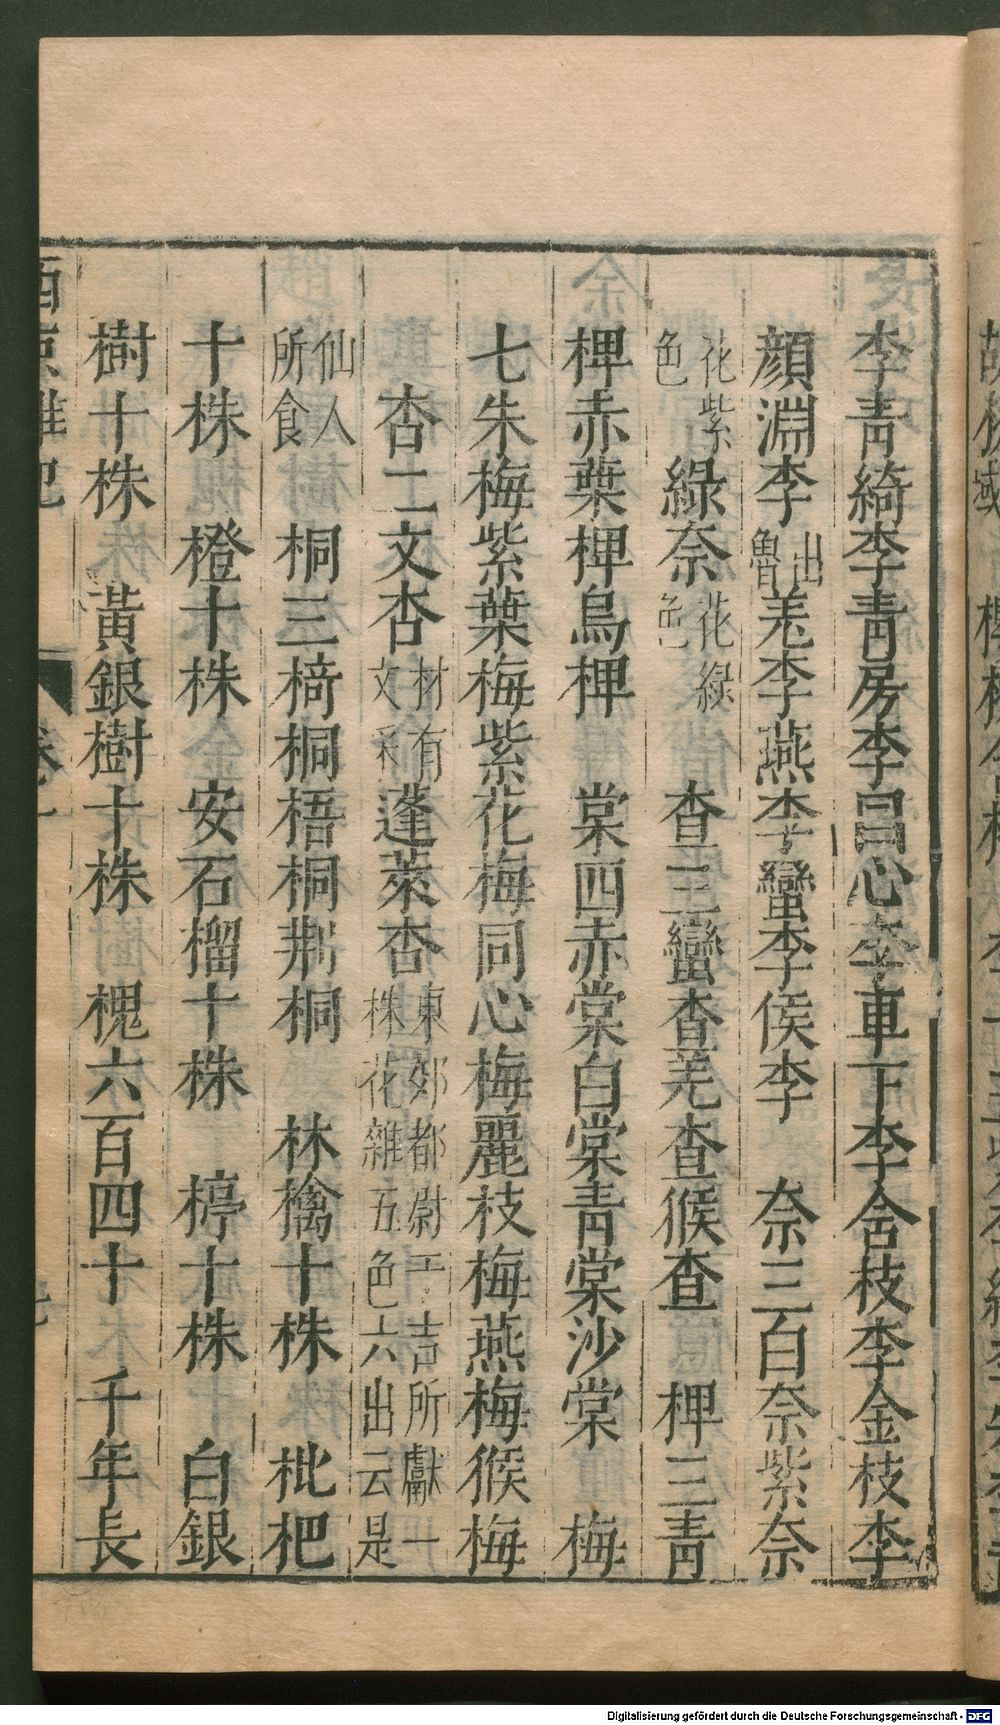 李青綺李青房李同心李車下李含枝李金枝李
顏淵李出魯羌李燕李蠻李侯李　奈三百奈紫奈
花紫色綠奈花綠色　查三蠻查羌查猴查　椑三青
椑赤葉椑烏椑　棠四赤棠白棠青棠沙棠　梅
七朱梅紫葉梅紫花梅同心梅麗枝梅燕梅猴梅
杏二文杏材有文彩蓬萊杏東郊都尉于吉所獻一株花雜五色六出云是
仙人所食　桐三椅桐梧桐荆桐　林檎十株　枇杷
十株　橙十株　安石榴十株　楟十株　白銀
樹十株　黃銀樹十株　槐六百四十　千年長
西京雜記　卷一　七
Digitalisierung gefördert durch die Deutsche Forschungsgemeinschaft - DFG